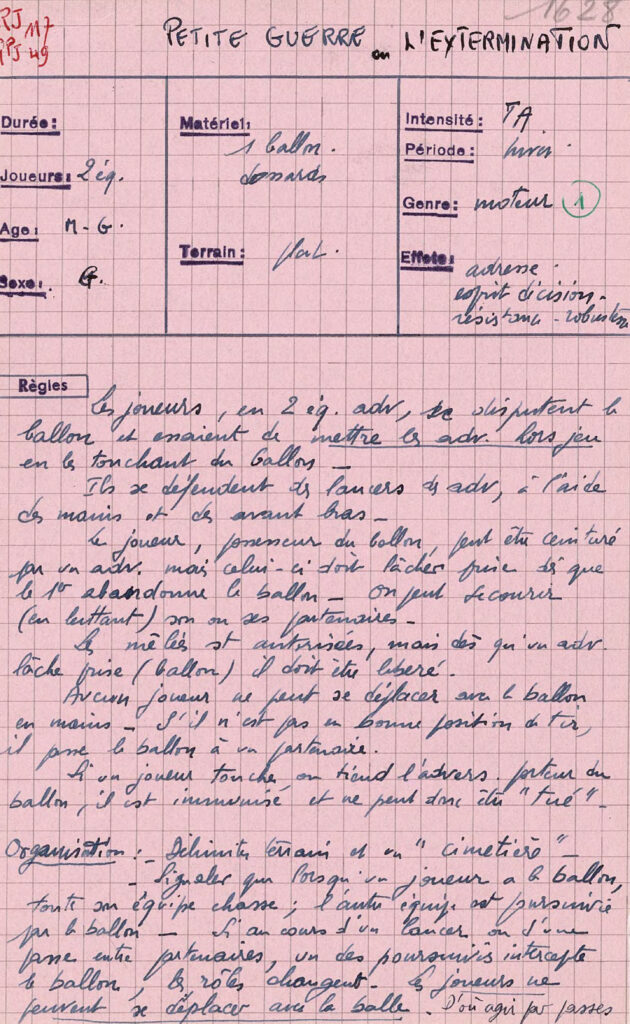 1628
RJ 117
PPJ 49
PETITE GUERRE ou L'EXTERMINATION
Durée:
Matériel: 1 ballon.
dossards
Intensité: TA
Période: hiver.
Joueurs: 2 éq.
Genre: moteur 1
Age: M - G.
Terrain: plat.
Effets: adresse.
esprit décision.
résistance - robustesse
Sexe: G.
Règles
Les joueurs, en 2 éq. adv, se disputent le
ballon et essaient de mettre les adv. hors jeu
en les touchant du ballon _
Ils se défendent des lancers des adv, à l'aide
des mains et des avant bras _
Le joueur, possesseur du ballon, peut être ceinturé
par un adv. mais celui-ci doit lâcher prise dès que
le 1er abandonne le ballon _ On peut secourir
(en luttant) son ou ses partenaires _
Les mêlées st autorisées, mais dès qu'un adv.
lâche prise (ballon) il doit être libéré.
Aucun joueur ne peut se déplacer avec le ballon
en mains _ S'il n'est pas en bonne position de tir,
il passe le ballon à un partenaire.
Si un joueur touche ou tient l'advers. porteur du
ballon, il est immunisé et ne peut donc être "tué" _
Organisation: _ Délimiter terrain et un "cimetière" _
_ Signaler que lorsqu'un joueur a le ballon,
toute son équipe chasse; l'autre équipe est poursuivie
par le ballon _ Si au cours d'un lancer ou d'une
passe entre partenaires, un des poursuivis intercepte
le ballon, les rôles changent. Les joueurs ne
peuvent se déplacer avec la balle. D'où agir par passes